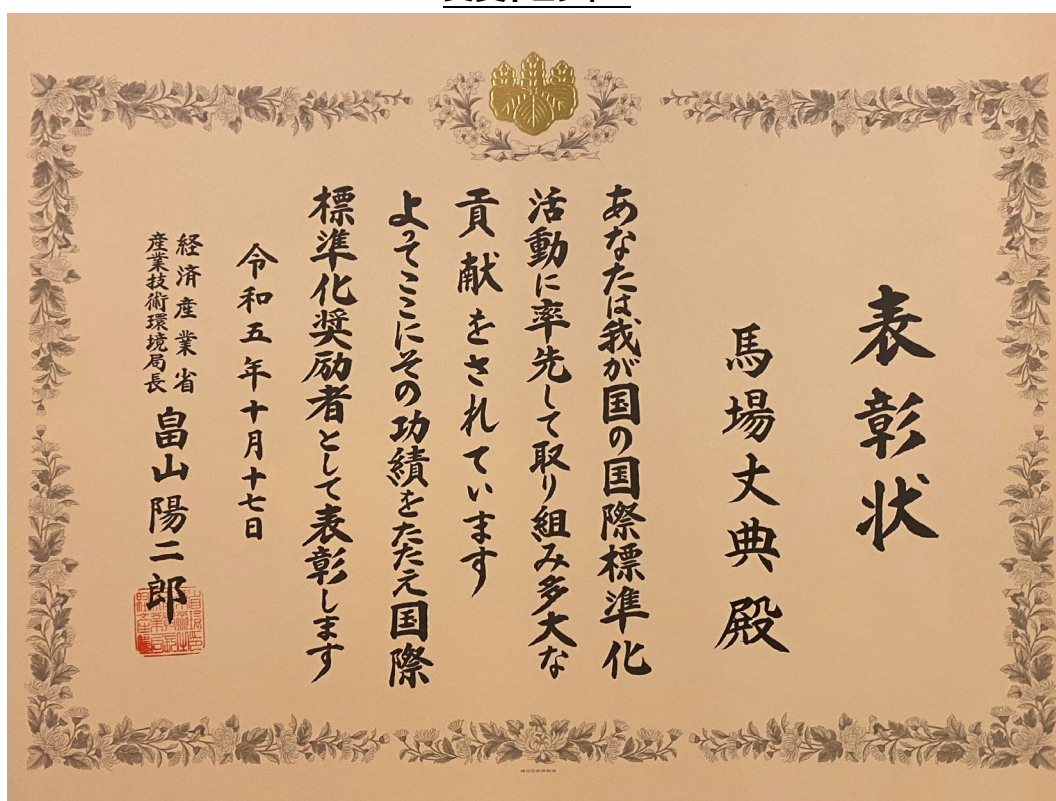 表彰状
馬場丈典殿
あなたは我が国の国際標準化
活動に率先して取り組み多大な
貢献をされています
よってここにその功績をたたえ国際
標準化奨励者として表彰します
令和五年十月十七日
経済産業省
産業技術環境局長
畠山陽二郎